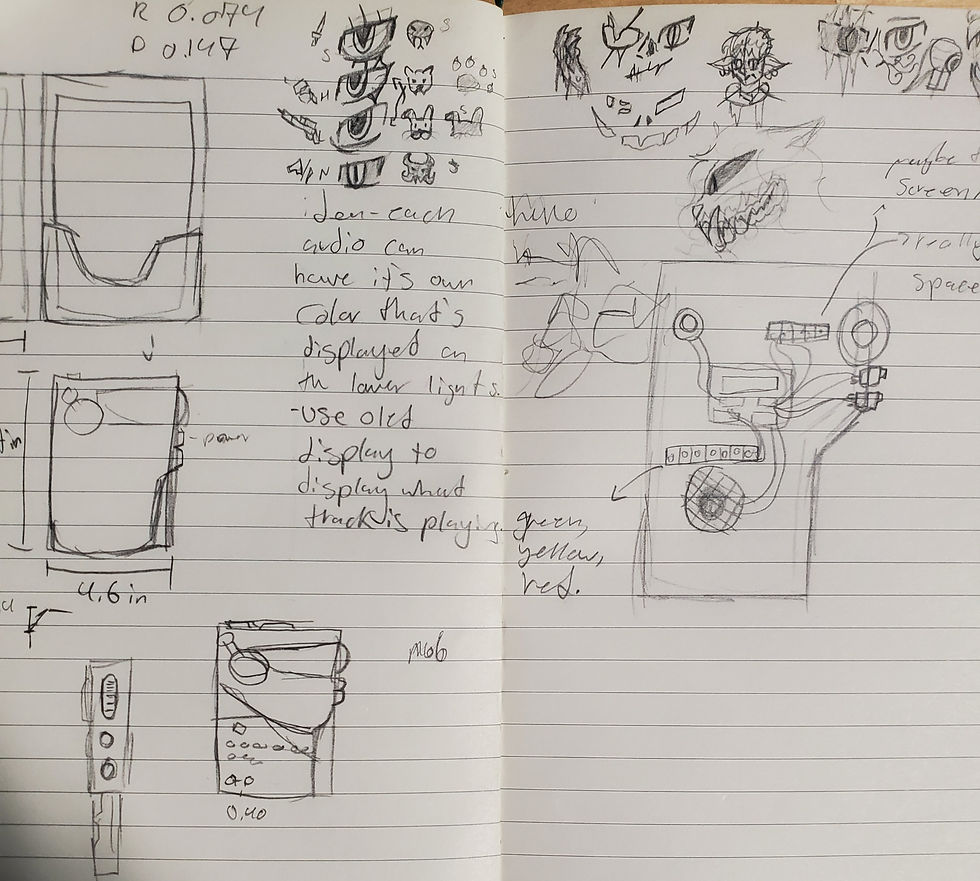 R 0.074
D 0.147
S
S
S
H
S
N
S
iden-each
audio can
have it's own
Color that's
displayed on
th lower lights.
-use oled
display to
display what
track is playing.
-power
in
4.6 in
mob
0.40
maybe
Screen
really
space
green,
yellow,
red.